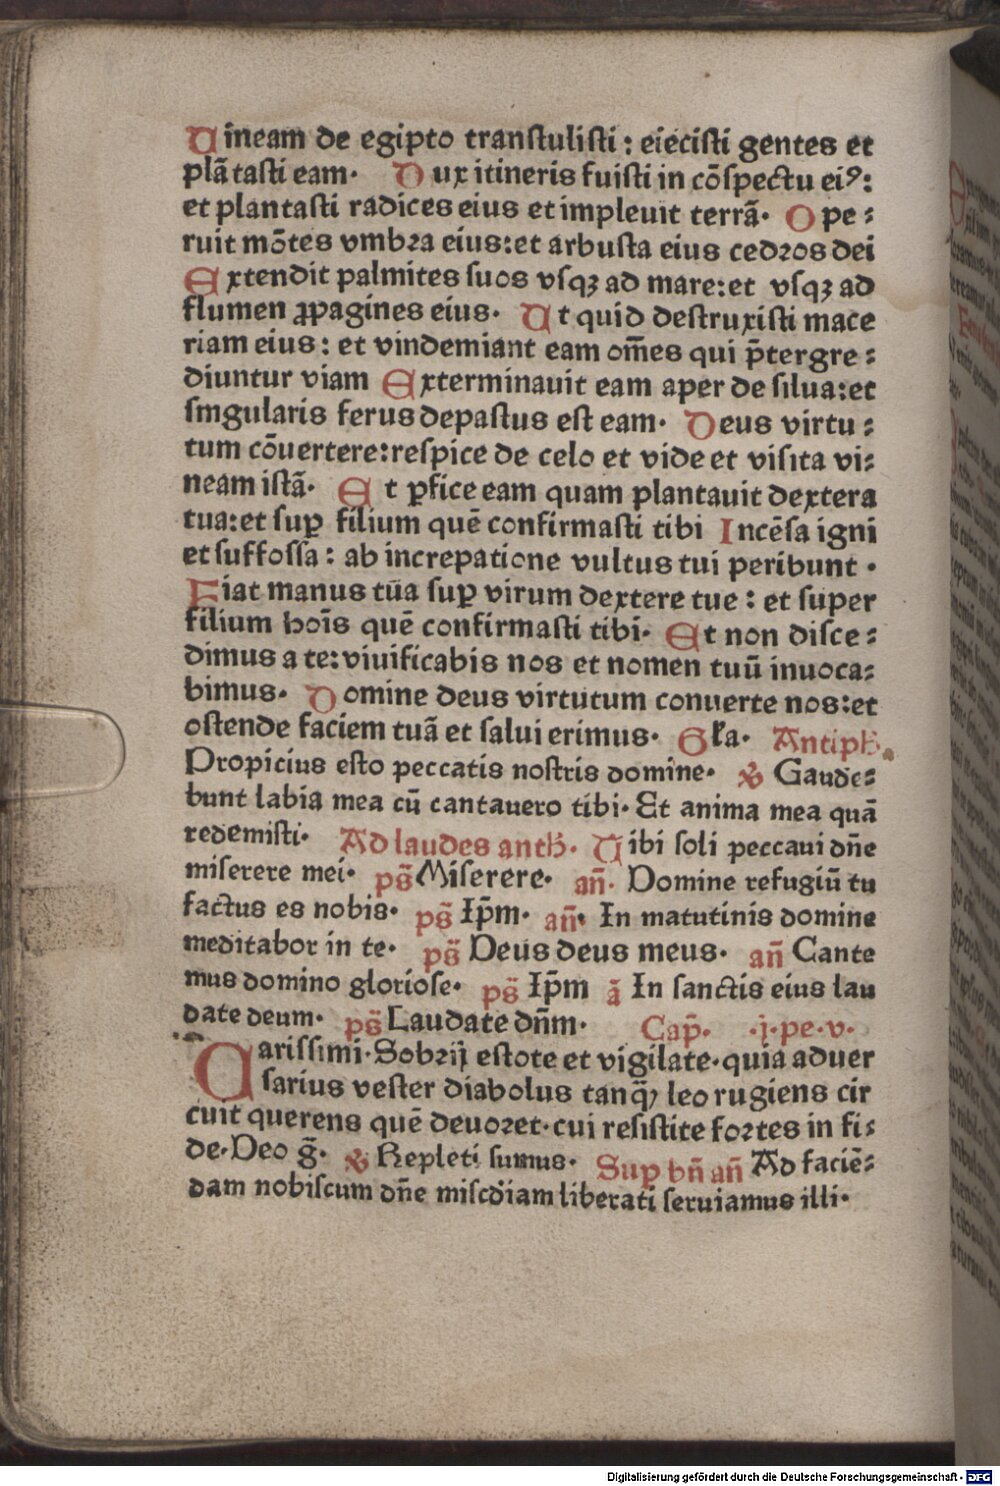 Uineam de egipto transtulisti : eiecisti gentes et
plātasti eam· Dux itineris fuisti in cōspectu eiꝰ:
et plantasti radices eius et impleuit terrā· Ope⸗
ruit mōtes vmbꝛa eius:et arbusta eius cedꝛos dei
Extendit palmites suos vsqꝫ ad mare:et vsqꝫ ad
flumen ꝓpagines eius· Ut quid destruxisti mace
riam eius : et vindemiant eam om̄es qui p̄tergre⸗
diuntur viam Exterminauit eam aper de silua:et
singularis ferus depastus est eam· Deus virtu⸗
tum cōuertere:respice de celo et vide et visita vi⸗
neam istā· Et ꝑfice eam quam plantauit dextera
tua:et suꝑ filium quē confirmasti tibi Incēsa igni
et suffossa : ab increpatione vultus tui peribunt ·
Fiat manus tūa suꝑ virum dextere tue : et super
filium hoīs quē confirmasti tibi· Et non disce⸗
dimus a te:viuificabis nos et nomen tuū inuoca⸗
bimus· Domine deus virtutum conuerte nos:et
ostende faciem tuā et salui erimus· Gꝉa· Antipħ
Propicius esto peccatis nostris domine· ℣ Gaude⸗
bunt labia mea cū cantauero tibi· Et anima mea quā
redemisti· Ad laudes antħ· Tibi soli peccaui dn̄e
miserere mei· ps̄ Miserere· an̄· Domine refugiū tu
factus es nobis· ps̄ Ip̄m· an̄· In matutinis domine
meditabor in te· ps̄ Deus deus meus· an̄ Cante
mus domino gloriose· ps̄ Ip̄m ā In sanctis eius lau
date deum· ps̄ Laudate dn̄m· Cap̄· ·j·pe·v·
Carissimi·Sobꝛij estote et vigilate·quia aduer
sarius vester diabolus tanq̄ꝫ leo rugiens cir
cuit querens quē deuoꝛet·cui resistite foꝛtes in fi⸗
de·Deo ḡ· ℣ Repleti sumus· Suꝑ bn̄ an̄ Ad faciē⸗
dam nobiscum dn̄e misc̄diam liberati seruiamus illi·
Digitalisierung gefördert durch die Deutsche Forschungsgemeinschaft - DFG